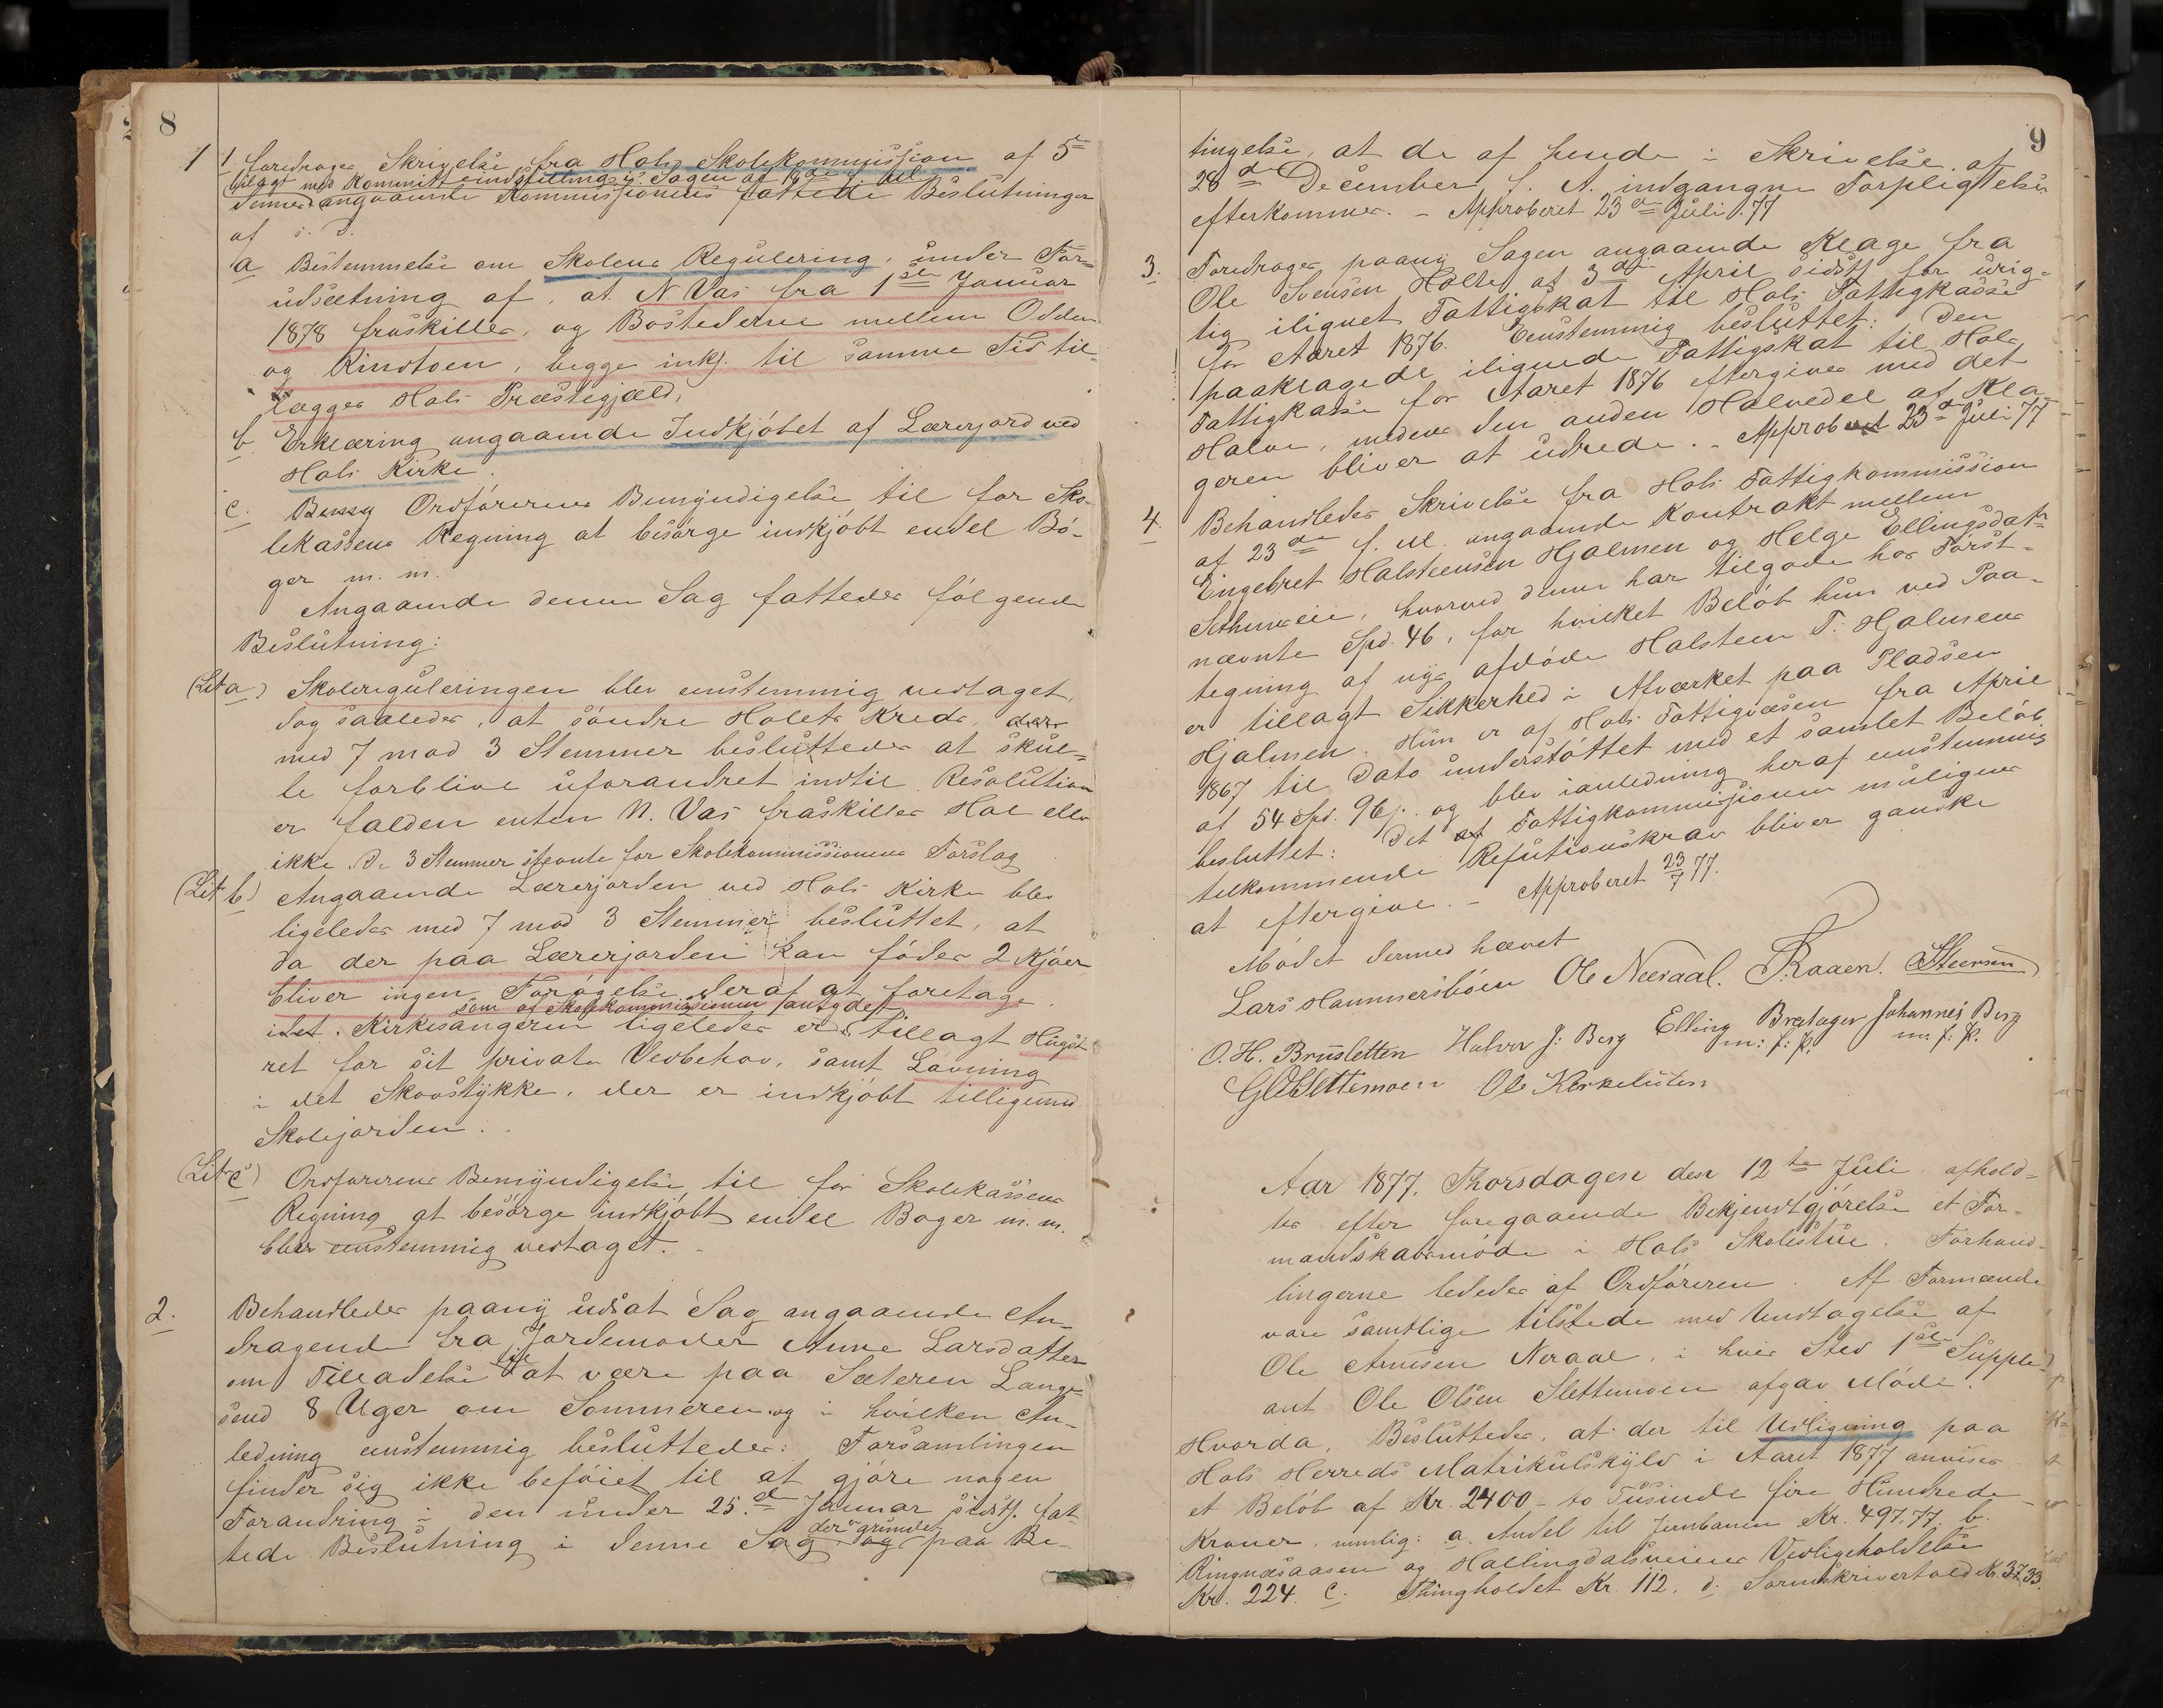 8
1 1 Foredroges Skrivelse fra Hols Skolekommission af 5te
bilagt med Kommitteindstilling i Sagen af
dennes angaaende Kommissionens fattede Beslutninger
af s. D.
a Bestemmelse om Skolens Regulering, under For=
udsætning af, at N. Vas fra 1ste Januar
1878 fraskilles, og Bostederne mellem Odden
og Rindtoen, begge inkl. til samme Tid til-
lægges Hols Præstegjæld,
b. Erklæring angaaende Indkjøbet af Lærerjord ved
Hols Kirke.
c. Ordførerens Bemyndigelse til for Sko-
lekassens Regning at besørge indkjøbt endel Bø-
ger m. m.
Angaaende denne Sag fattedes følgende
Beslutning:
(Lit a.) Skolereguleringen blev enstemmig vedtaget,
dog saaledes, at søndre Holets Kreds,
med 7 mod 3 Stemmer besluttedes at skul=
le forblive uforandret indtil Resolution
er falden enten N. Vas fraskilles Hol eller
ikke. De 3 Stemmer stemte for Skolekommissionens Forslag
(Lit b) Angaaende Lærerjorden ved Hols Kirke blev
ligeledes med 7 mod 3 Stemmer besluttet, at
da der paa Lærerjorden kan fødes 2 Kjøer
bliver ingen Forøgelse deraf at foretage
som af Skolekommissionen antydet
idet Kirkesangeren ligeledes er tillagt Hugst
ret for sit private Vedbehov, samt Løvning
i det Skovstykke, der er indkjøbt tilligemed
Skolejorden.
(Lit c) Ordførerens Bemyndigelse til for Skolekassens
Regning at besørge indkjøbt endel Bøger m. m.
blev enstemmig vedtaget. -
2. Behandledes paany udsat Sag angaaende An-
dragende fra Jordemoder Anne Larsdatter
om Tilladelse til at være paa Sæteren Lange-
send 8 Uger om Sommeren og i hvilken An-
ledning enstemmig besluttedes: Forsamlingen
finder sig ikke beføiet til at gjøre nogen
Forandring i den under 25de Januar sidstl. fat-
tede Beslutning i denne Sag der grundet paa Be-
9
tingelse, at de af hende i Skrivelse af
28de December f. A. indgangne Forpligtelser
efterkommes. - Approberet 23de Juli 77
3. Foredroges paany Sagen angaaende Klage fra
Ole Svensen Holte af 3die April sidstl for urig-
tig ilignet Fattigskat til Hols Fattigkasse
for Aaret 1876. Eenstemmig besluttet: Den
paaklagede ilignede Fattigskat til Hols
Fattigkasse for Aaret 1876 eftergives med det
Halve, medens den anden Halvedel af Kla-
geren bliver at udrede. - Approberet 23de Juli 77
4. Behandledes Skrivelse fra Hols Fattigkommission
af 23de f. M. angaaende Kontrakt mellem
Engebret Halsteensen Hjalmen og Helge Ellingsdatr
hvorved denne har tilgode hos Først-
nævnte Spd. 46, for hvilket Beløb hun ved Paa-
tegning af afdøde Halsten T. Hjalmens
er tillagt Sikkerhed i Afværket paa Pladsen
Hjalmen. Hun er af Hols Fattigvæsen fra April
1867 til Dato understøttet med et samlet Beløb
af 54 Spd. 96 s. og blev ianledning heraf enstemmig
besluttet: Det af Fattigkommissionen muligens
tilkommende Refutionskrav bliver ganske
at eftergive. - Approberet 23/7 77.
Mødet dermed hævet
Lars Hammersbøen Ole Neeraal. T. Raaen. Steensen
O. H. Brusletten Halvor J: Berg Elling Bratager Johannes Berg
m: f: P. m. f. P.
G O Slettemoen Ole Kirkeluten
Aar 1877, Thorsdagen den 12te Juli afhold-
tes efter foregaaende Bekjendtgjørelse et For-
mandskabsmøde i Hols Skolestue. Forhand-
lingerne lededes af Ordføreren. Af Formænde
vare samtlige tilstede med Undtagelse af
Ole Arnesen Neraal, i hvis Sted 1ste Supple-
ant Ole Olsen Slettemoen afgav Møde.
Hvorda, Besluttedes, at der til Udligning paa
Hols Herreds Matrikulskyld i Aaret 1877 anvises
et Beløb af Kr. 2400 - to Tusinde fire Hundrede -
Kroner, nemlig: a. Andel til Jernbanen Kr. 497.77. b.
Ringnæsaasen og Hallingdalsveiens Vedligeholdelse
Kr. 224. c. Thingholdet Kr. 112. d. Sorenskrivertold Kr. 37.33.